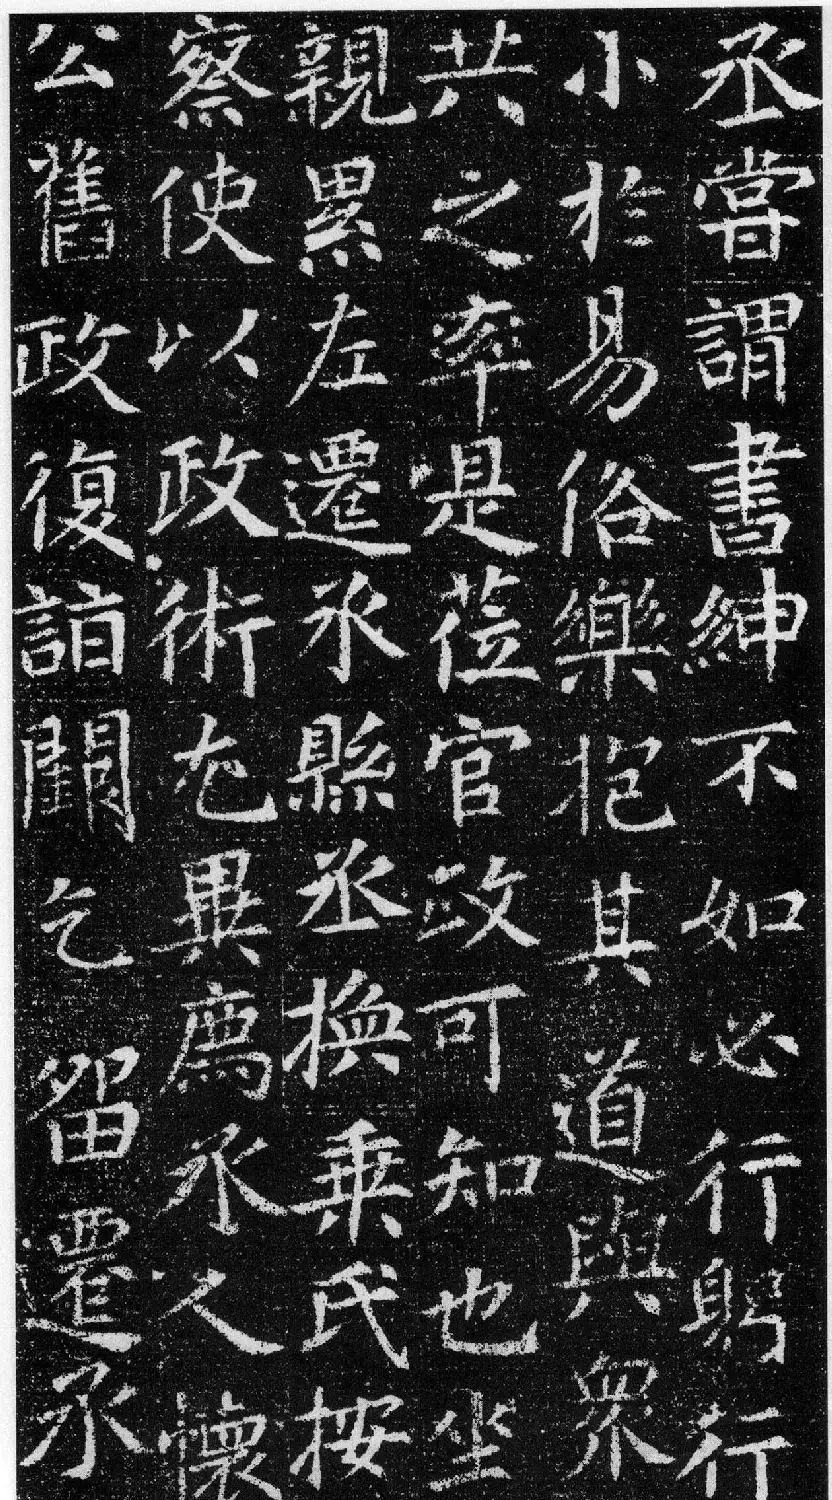 丞嘗謂書紳不如必行躬行
小於易俗樂抱其道與衆
共之率是莅官政可知也坐
親累左遷氶縣丞換乘氏按
察使以政術尤異薦氶人懷
公舊政復詣闕乞留遷氶